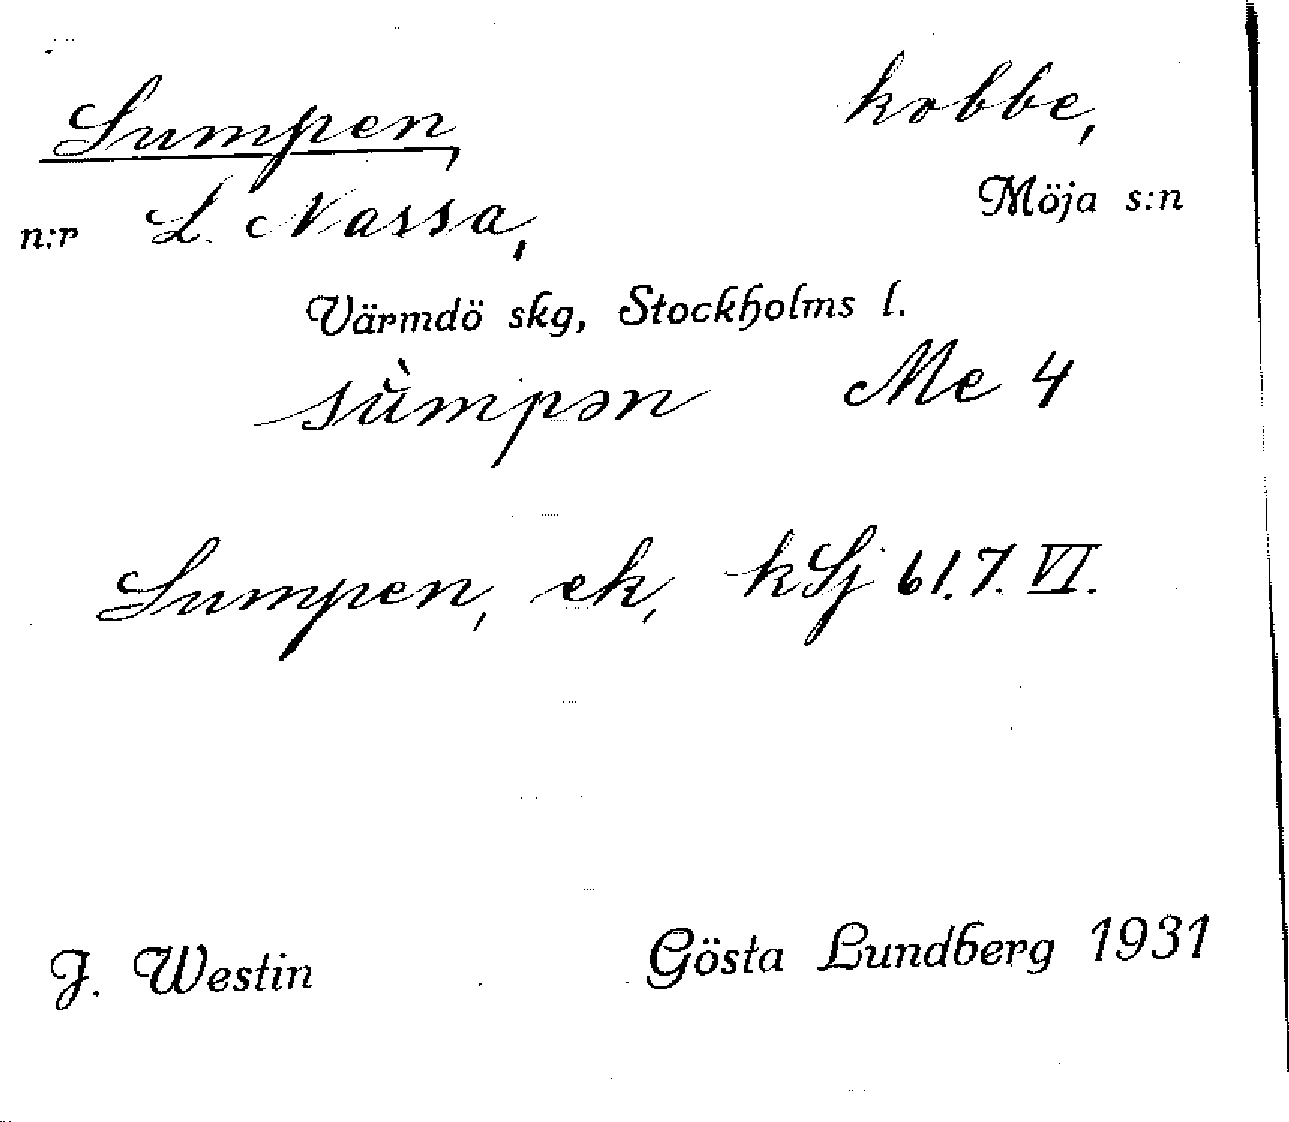 Sumpen, kobbe,
n:r L. Nassa, Möja s:n
Värmdö skg, Stockholms l.
sùmpən Me 4
Sumpen, ek, kSj 61.7. VI.
J. Westin Gösta Lundberg 1931